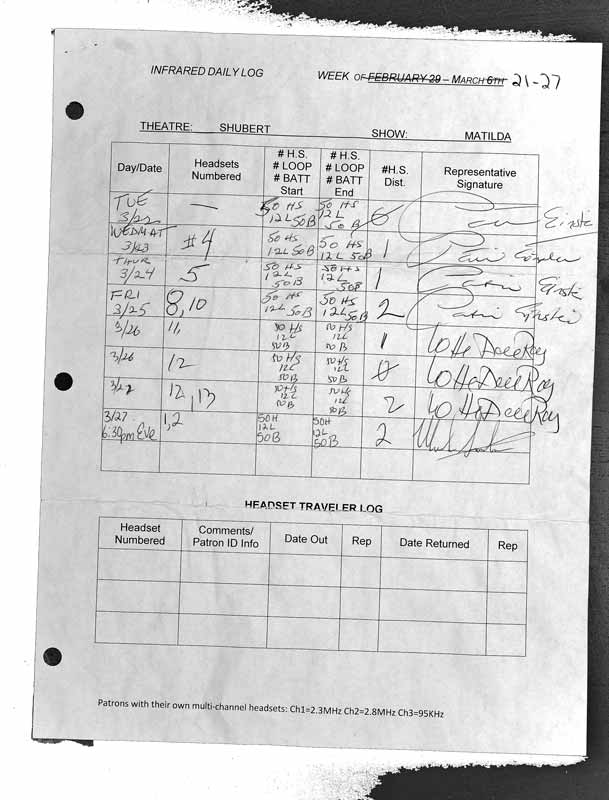 INFRARED DAILY LOG WEEK OF FEBRUARY 29 – MARCH 6TH 21-27
THEATRE: SHUBERT SHOW: MATILDA
Day/Date Headsets Numbered # H.S. # LOOP # BATT Start # H.S. # LOOP # BATT End #H.S. Dist. Representative Signature
TUE 3/22 — 50 HS 12L 50B 50 HS 12L 50B 0
WEDMAT 3/23 #4 50 HS 12L 50B 50 HS 12L 50B 1
THUR 3/24 5 50 HS 12L 50B 50 HS 12L 50B 1
FRI 3/25 8,10 50 HS 12L 50B 50 HS 12L 50B 2
3/26 11 50 HS 12L 50B 50 HS 12L 50B 1
3/26 12 50 HS 12L 50B 50 HS 12L 50B 0
3/27 12,13 50 HS 12L 50B 50 HS 12L 50B 2
3/27 6:30pm Eve 1,2 50H 12L 50B 50H 12L 50B 2
HEADSET TRAVELER LOG
Headset Numbered Comments/ Patron ID Info Date Out Rep Date Returned Rep
Patrons with their own multi-channel headsets: Ch1=2.3MHz Ch2=2.8MHz Ch3=95KHz